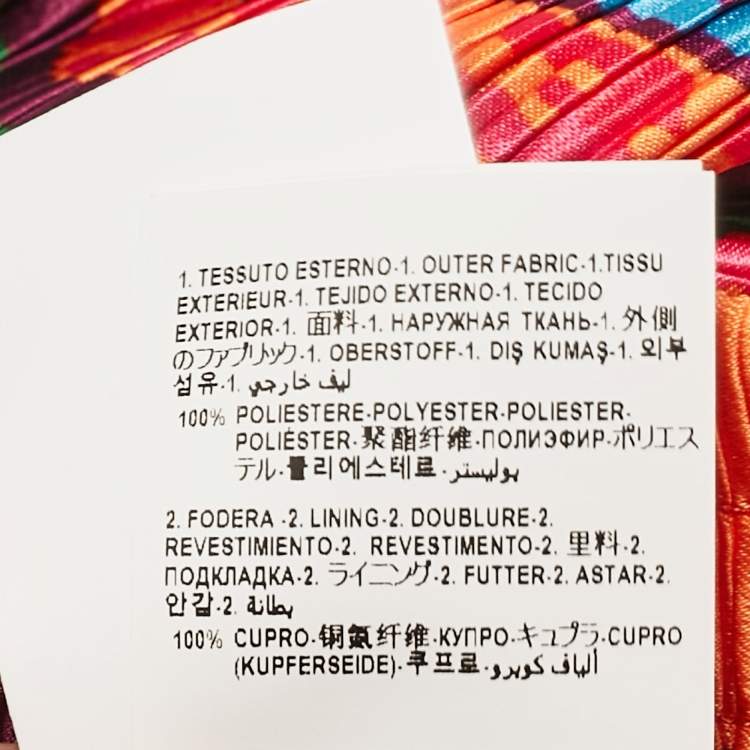 1. TESSUTO ESTERNO-1. OUTER FABRIC-1.TISSU
EXTERIEUR-1. TEJIDO EXTERNO-1. TECIDO
EXTERIOR-1. 面料-1. НАРУЖНАЯ ТКАНЬ-1. 外側
のファブリック-1. OBERSTOFF-1. DIŞ KUMAŞ-1. 외부
섬유-1. ليف خارجي
100% POLIESTERE-POLYESTER-POLIESTER-
POLIÉSTER-聚酯纤维-ПОЛИЭФИР-ポリエス
テル-폴리에스테르-بوليستر
2. FODERA -2. LINING-2. DOUBLURE-2.
REVESTIMIENTO-2. REVESTIMENTO-2. 里料-2.
ПОДКЛАДКА-2. ライニング-2. FUTTER-2. ASTAR-2.
안감-2. بطانة
100% CUPRO-铜氨纤维-КУПРО-キュプラ-CUPRO
(KUPFERSEIDE)-쿠프로-ألياف كوبرو